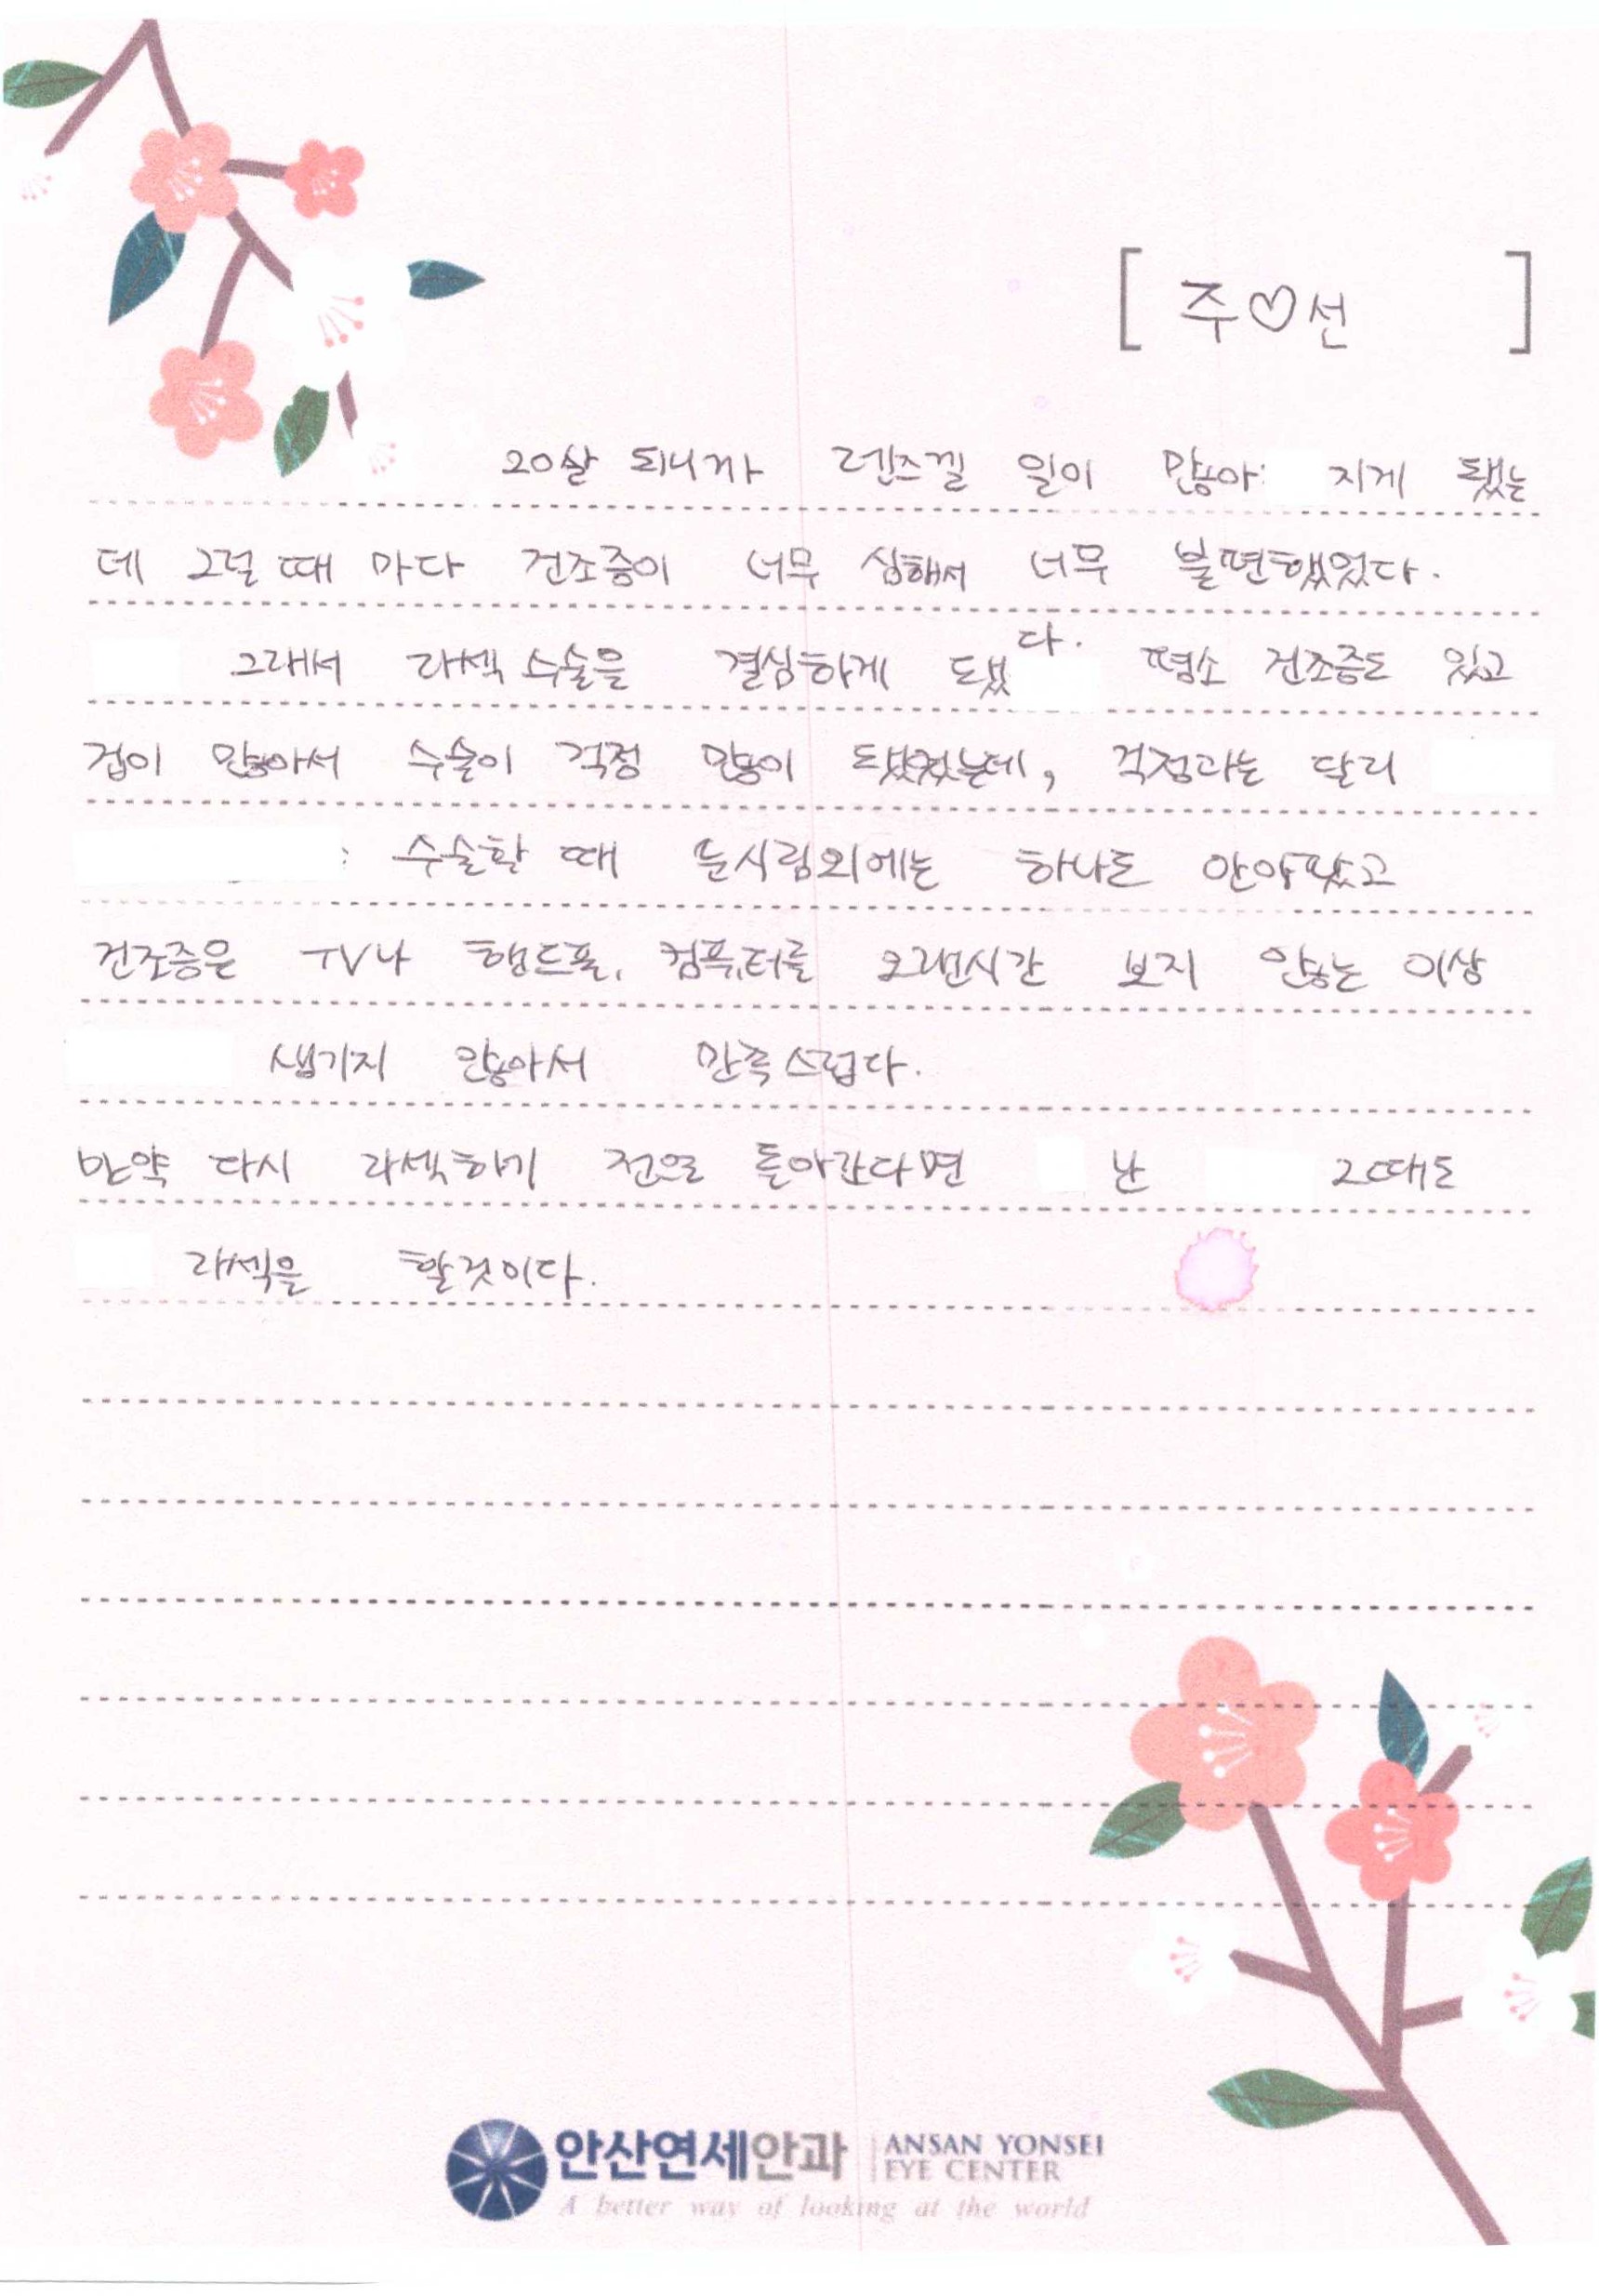 [ 주♡선 ]
20살 되니까 렌즈낄 일이 많아 지게 됐는
데 그럴 때 마다 건조증이 너무 심해서 너무 불편했었다.
그래서 라섹 수술을 결심하게 됐다. 평소 건조증도 있고
겁이 많아서 수술이 걱정 많이 됐었는데, 걱정과는 달리
수술할 때 눈시림외에는 하나도 안아팠고
건조증은 TV나 핸드폰, 컴퓨터를 오랜시간 보지 않는 이상
생기지 않아서 만족스럽다.
만약 다시 라섹하기 전으로 돌아간다면 난 그때도
라섹을 할것이다.
안산연세안과 ANSAN YONSEI
EYE CENTER
A better way of looking at the world